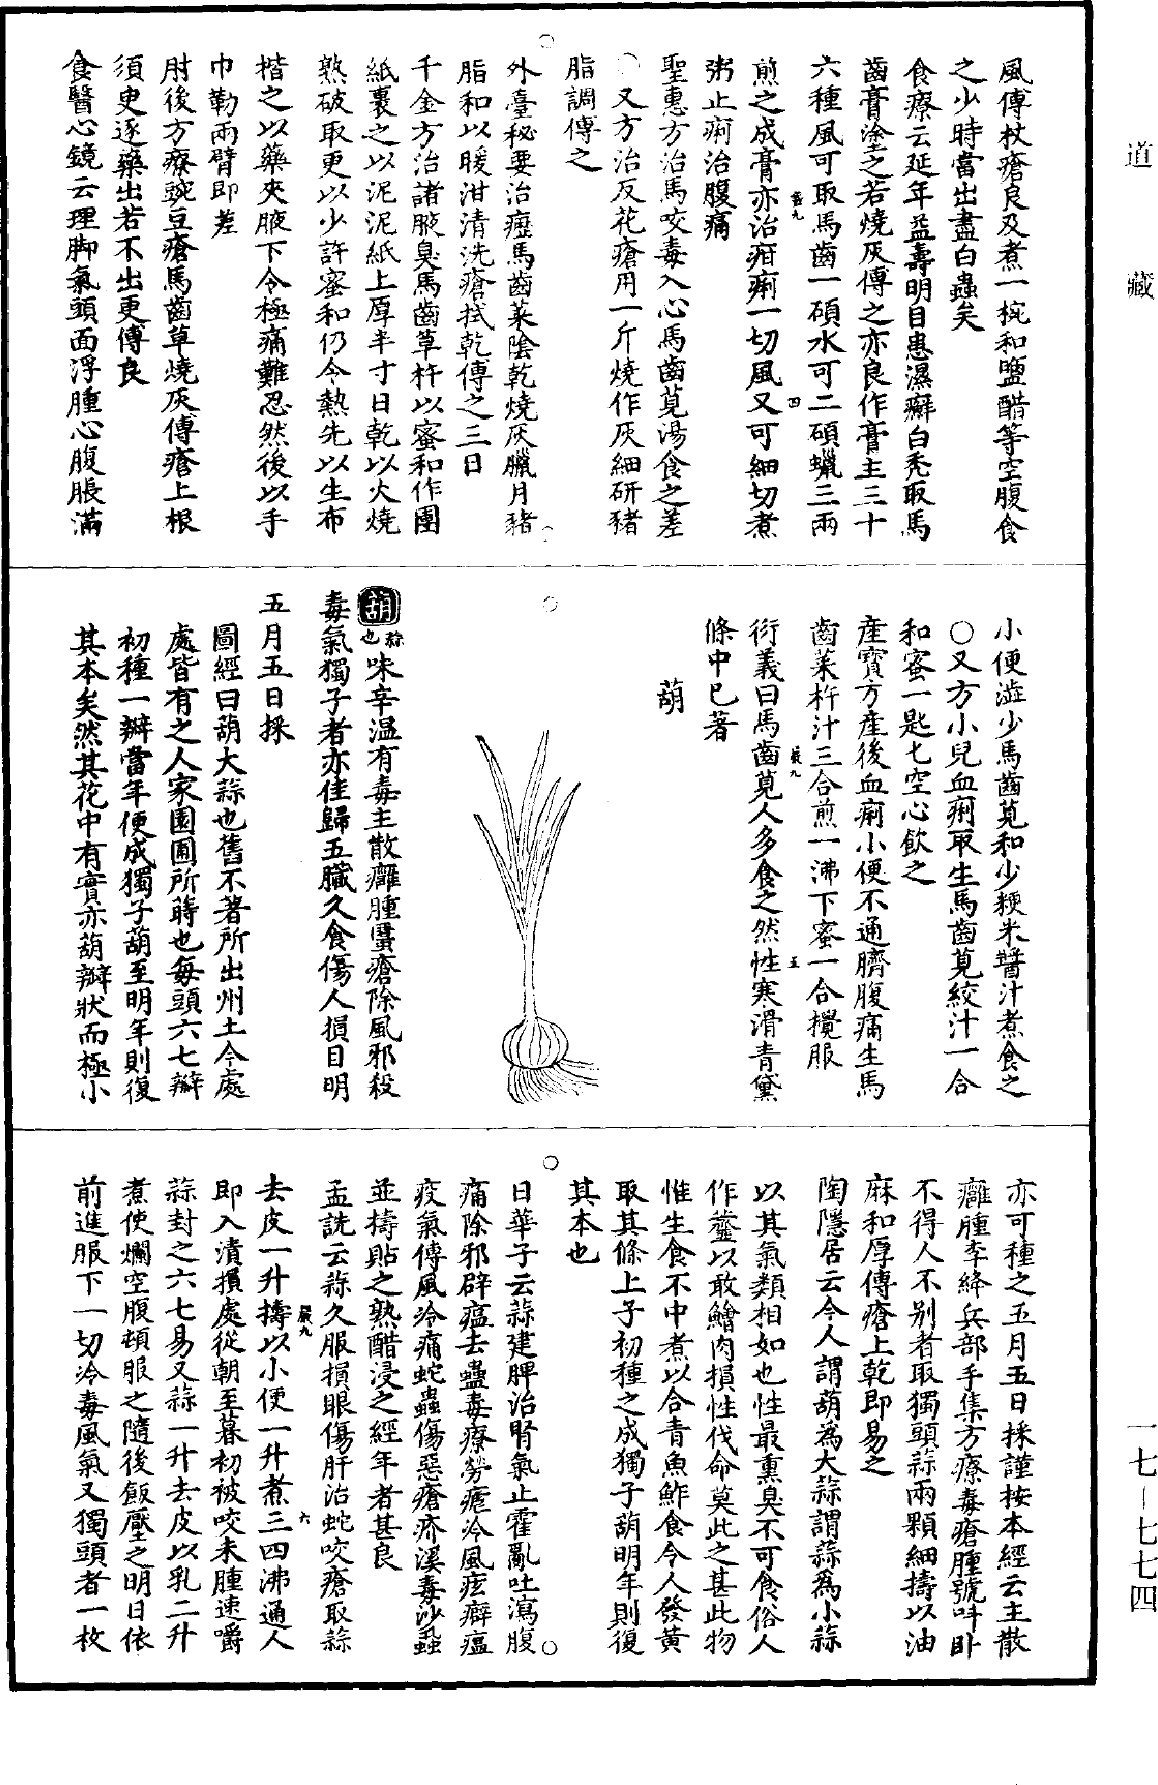 道藏
風傅杖瘡良及煮一椀和鹽醋等空腹食
之少時當出盡白蟲矣
食療云延年益壽明目患濕癬白禿取馬
齒膏塗之若燒灰傅之亦良作膏主三十
六種風可取馬齒一碩水可二碩蠟三兩
煎之成膏亦治疳痢一切風又可細切煮
粥止痢治腹痛
聖惠方治馬咬毒入心馬齒莧湯食之差
〇又方治反花瘡用一斤燒作灰細研豬
脂調傅之
外臺秘要治癧馬齒菜陰乾燒灰臘月豬
脂和以暖泔清洗瘡拭乾傅之三日
千金方治諸腋臭馬齒草杵以蜜和作團
紙裹之以泥泥紙上厚半寸日乾以火燒
熟破取更以少許蜜和仍令熱先以生布
揩之以藥夾腋下令極痛難忍然後以手
巾勒兩臂即差
肘後方療豌豆瘡馬齒草燒灰傅瘡上根
須臾逐藥出若不出更傅良
食醫心鏡云理脚氣頭面浮腫心腹脹滿
小便澁少馬齒莧和少粳米醬汁煮食之
〇又方小兒血痢取生馬齒莧絞汁一合
和蜜一匙匕空心飲之
產寶方產後血痢小便不通臍腹痛生馬
齒菜杵汁三合煎一沸下蜜一合攪服
衍義曰馬齒莧人多食之然性寒滑青黛
條中已著
葫
葫蒜也味辛溫有毒主散癰腫䘌瘡除風邪殺
毒氣獨子者亦佳歸五臟久食傷人損目明
五月五日採
圖經曰葫大蒜也舊不著所出州土今處
處皆有之人家園圃所蒔也每頭六七瓣
初種一瓣當年便成獨子葫至明年則復
其本矣然其花中有實亦葫瓣狀而極小
亦可種之五月五日採謹按本經云主散
癰腫李絳兵部手集方療毒瘡腫號叫臥
不得人不別者取獨頭蒜兩顆細擣以油
麻和厚傅瘡上乾即易之
陶隱居云今人謂葫為大蒜謂蒜為小蒜
以其氣類相如也性最熏臭不可食俗人
作虀以敢鱠肉損性伐命莫此之甚此物
惟生食不中煮以合青魚鮓食令人發黃
取其條上子初種之成獨子葫明年則復
其本也
日華子云蒜建脾治腎氣止霍亂吐瀉腹
痛除邪辟瘟去蠱毒療勞瘧冷風痃癖瘟
疫氣傅風冷痛蛇蟲傷惡瘡疥溪毒沙蝨
並擣貼之熟醋浸之經年者甚良
孟詵云蒜久服損眼傷肝治蛇咬瘡取蒜
去皮一升擣以小便一升煮三四沸通人
即入漬損處從朝至暮初被咬未腫速嚼
蒜封之六七易又蒜一升去皮以乳二升
煮使爛空腹頓服之隨後飯壓之明日依
前進服下一切冷毒風氣又獨頭者一枚
一七—七七四